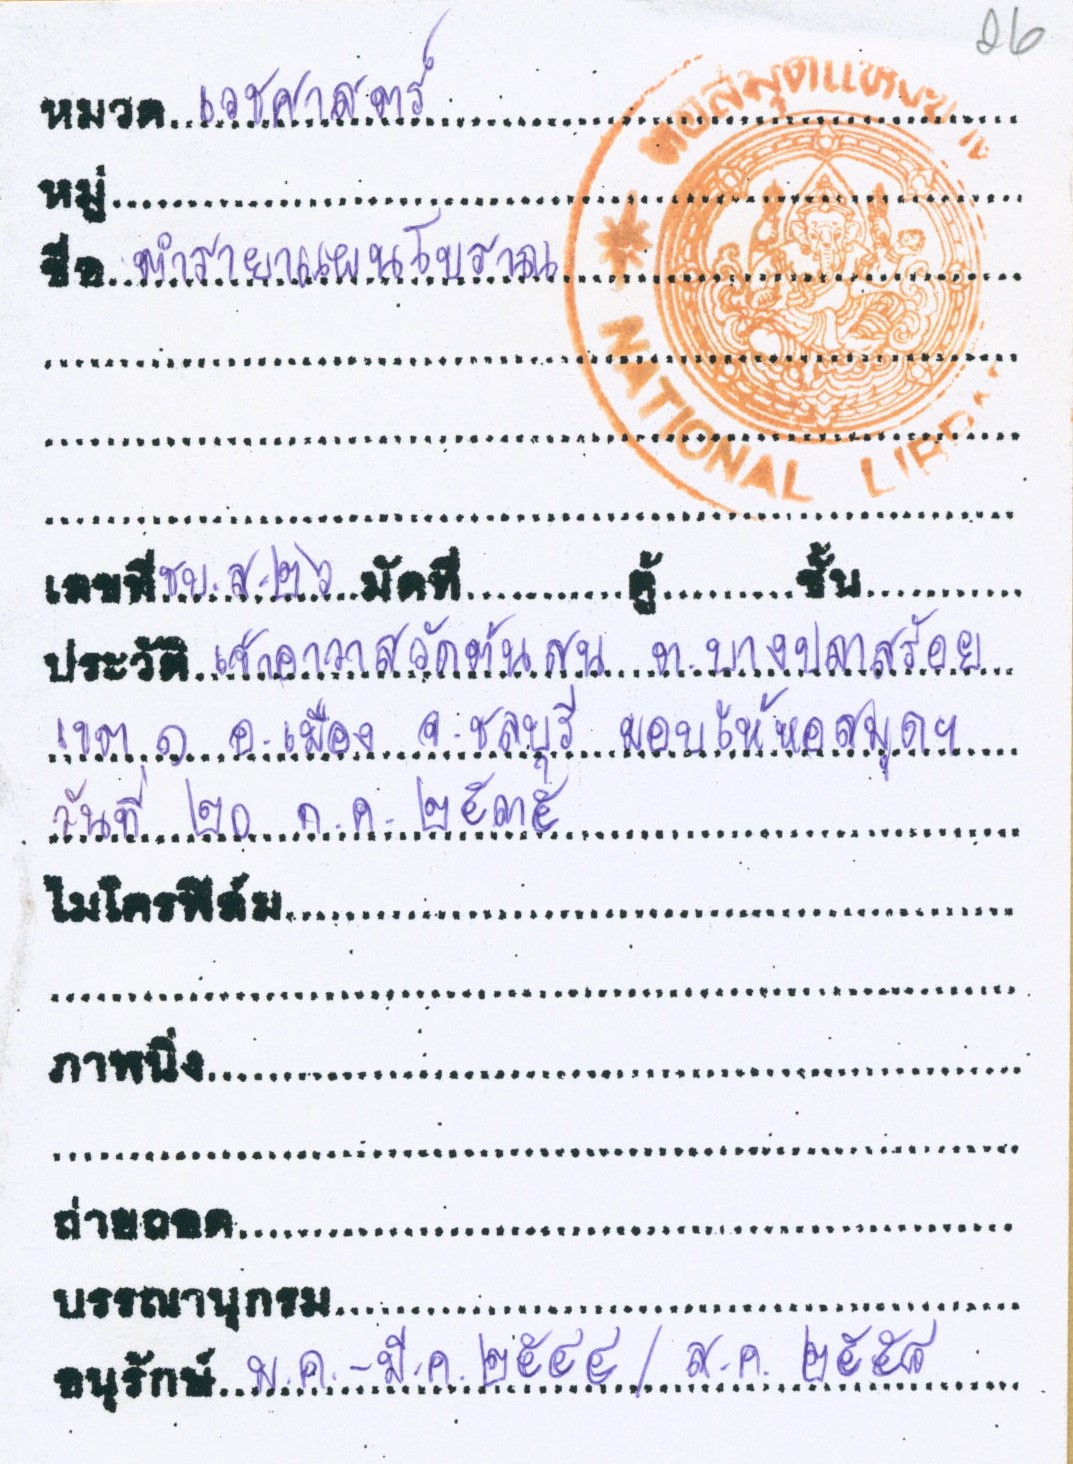 ๑๖
หมวด เวชศาสตร์
หมู่
ชื่อ ตำรายาแผนโบราณ
หอสมุดแห่งชาติ
NATIONAL LIBRARY
เลขที่ ชบ.ส.๒๖ มัดที่ ตู้ ชั้น
ประวัติ เจ้าอาวาสวัดต้นสน ต.บางปลาสร้อย
เขต ๑ อ.เมือง จ.ชลบุรี มอบให้หอสมุดฯ
วันที่ ๒๐ ก.ค. ๒๕๓๕
ไมโครฟิล์ม
ภาพนิ่ง
ถ่ายถอด
บรรณานุกรม
อนุรักษ์ ม.ค.-มี.ค. ๒๕๔๔ / ส.ค. ๒๕๕๘